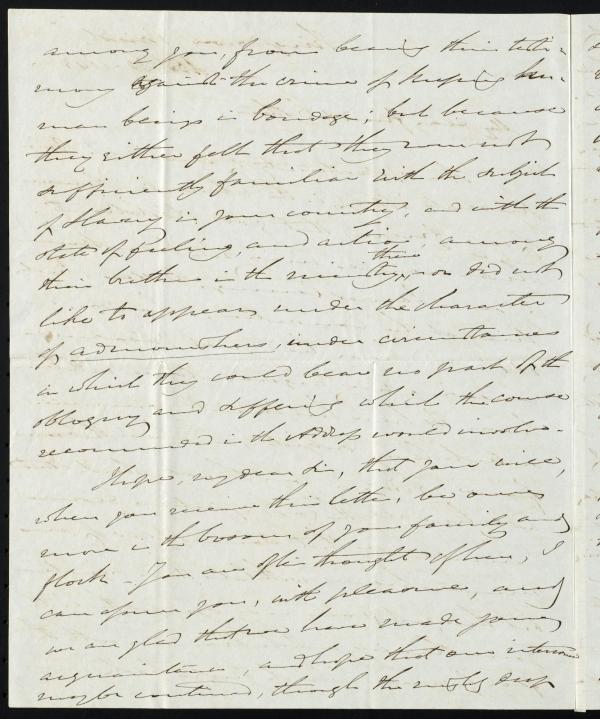 among you, from bearing their testi-
mony against the crime of keeping hu-
man beings in bondage; but because
they either felt that they were not
sufficiently familiar with the subject
of Slavery in your country, and with the
state of feeling, and action, among
their brethren in the ministry there, or did not
like to appear under the character
of admonishers, under circumstances
in which they could bear no part of the
obloquy and suffering which the course
recommended in the Address would involve.
I hope, my dear Sir, that you will,
when you receive this letter, be once
more in the bosom of your family and
flock – You are often thought of here, I
can assure you, with pleasure, and
we are glad that we have made your
acquaintance, and hope that our intercourse
may be continued, though the mighty deep